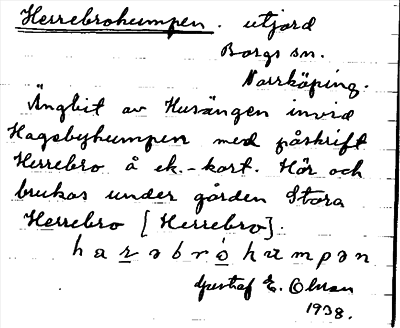 Herrebrohumpen. utjord
Borgs sn.
Norrköping.
Ängbit av Husängen invid
Hagebyhumpen med påskrift
Herrebro å ek.-kart. Hör och
brukas under gården Stora
Herrebro [Herrebro].
harəbróhumpən
Gustaf E. Olsson
1938.